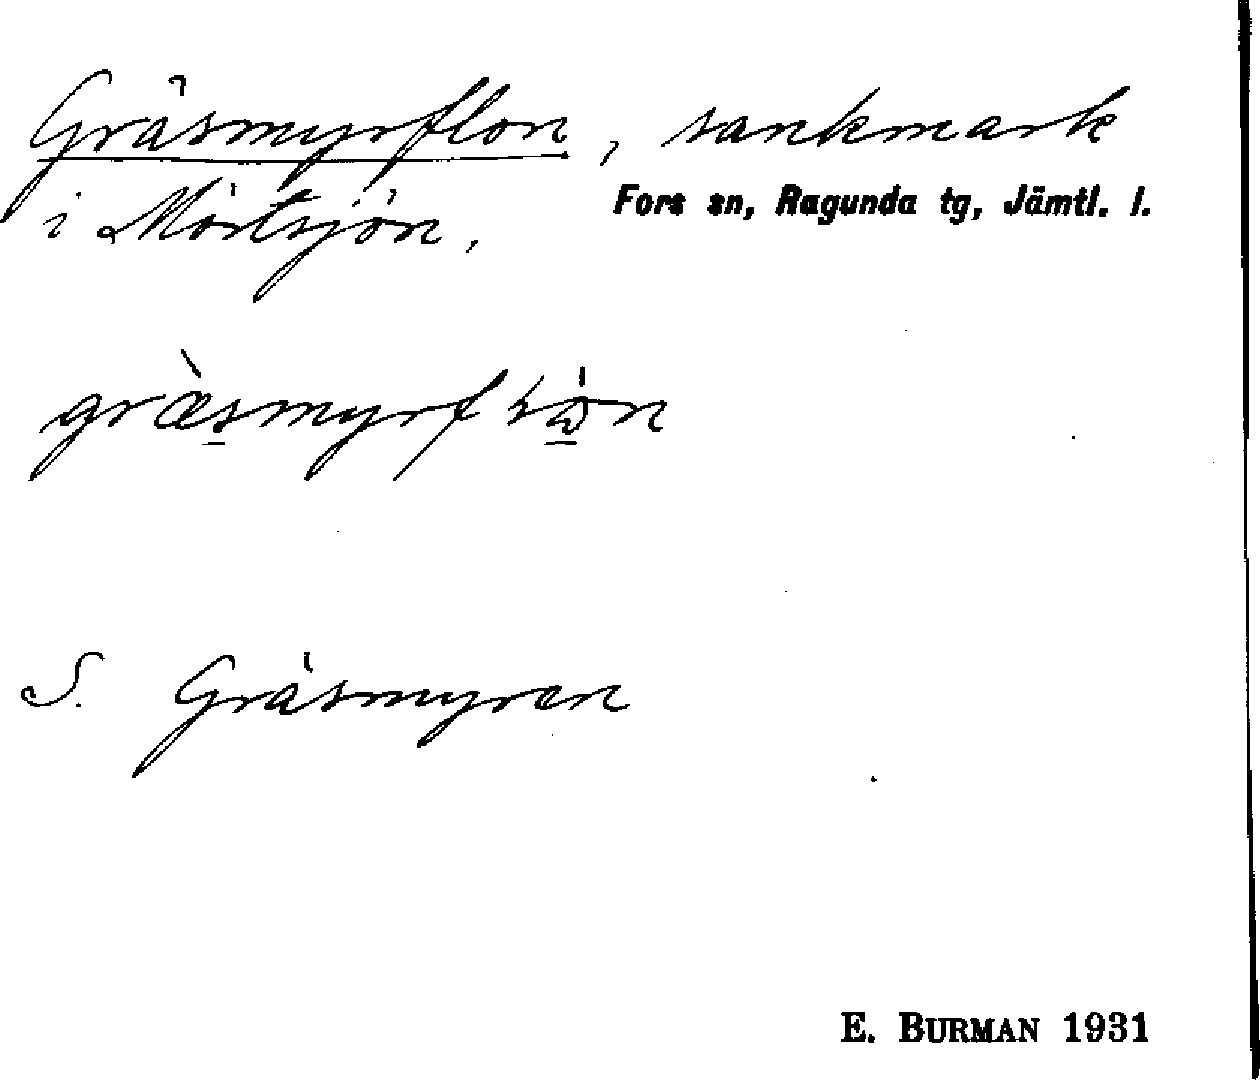 Gräsmyrflon, sankmark
i Mörtsjön, Fors sn, Ragunda tg, Jämtl. l.
S. Gräsmyran
E. BURMAN 1931